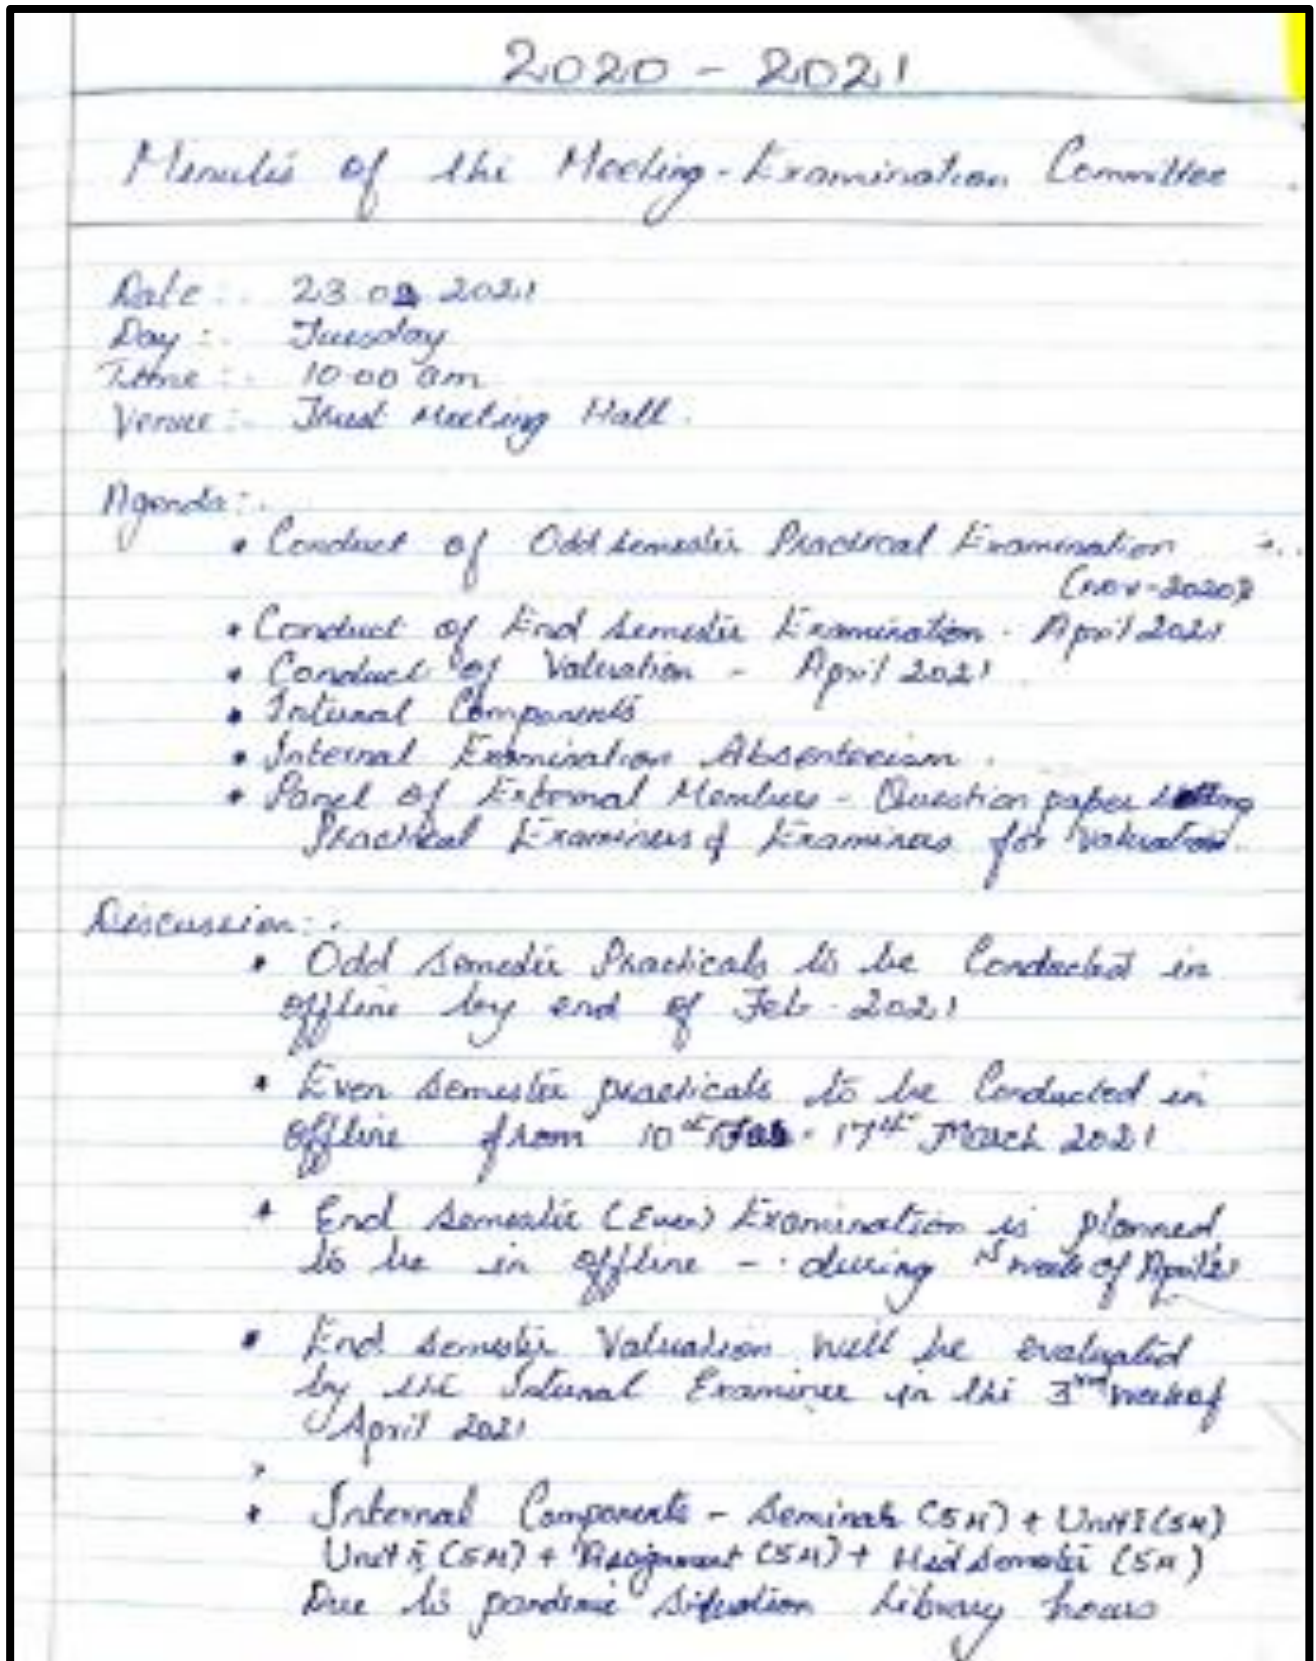 2020 - 2021
Minutes of the Meeting - Examination Committee
Date :- 23.02.2021
Day :- Tuesday
Time :- 10.00 am
Venue :- Trust Meeting Hall.
Agenda :-
• Conduct of Odd semester Practical Examination
(Nov-2020)
• Conduct of End semester Examination - April 2021
• Conduct of Valuation - April 2021
• Internal Components
• Internal Examination Absenteeism.
• Panel of External Members - Question paper setting
Practical Examiners & Examiners for Valuation.
Discussion :-
• Odd semester Practicals to be Conducted in
offline by end of Feb - 2021
• Even semester practicals to be Conducted in
offline from 10th - 17th March 2021
• End semester (Even) Examination is planned
to be in offline - during 1st week of April'21
• End semester Valuation will be evaluated
by the Internal Examiner in the 3rd week of
April 2021
• Internal Components - Seminar (5M) + Unit I (5M)
Unit II (5M) + Assignment (5M) + Mid semester (5M)
Due to pandemic situation Library hours